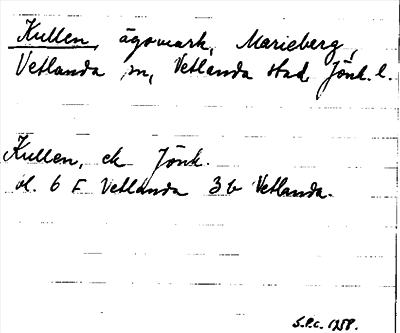 Kullen, ägomark, Marieberg,
Vetlanda sn, Vetlanda stad Jönk. l.
Kullen, ek Jönk.
bl. 6 F Vetlanda 3 b Vetlanda.
S.P.C. 1958.